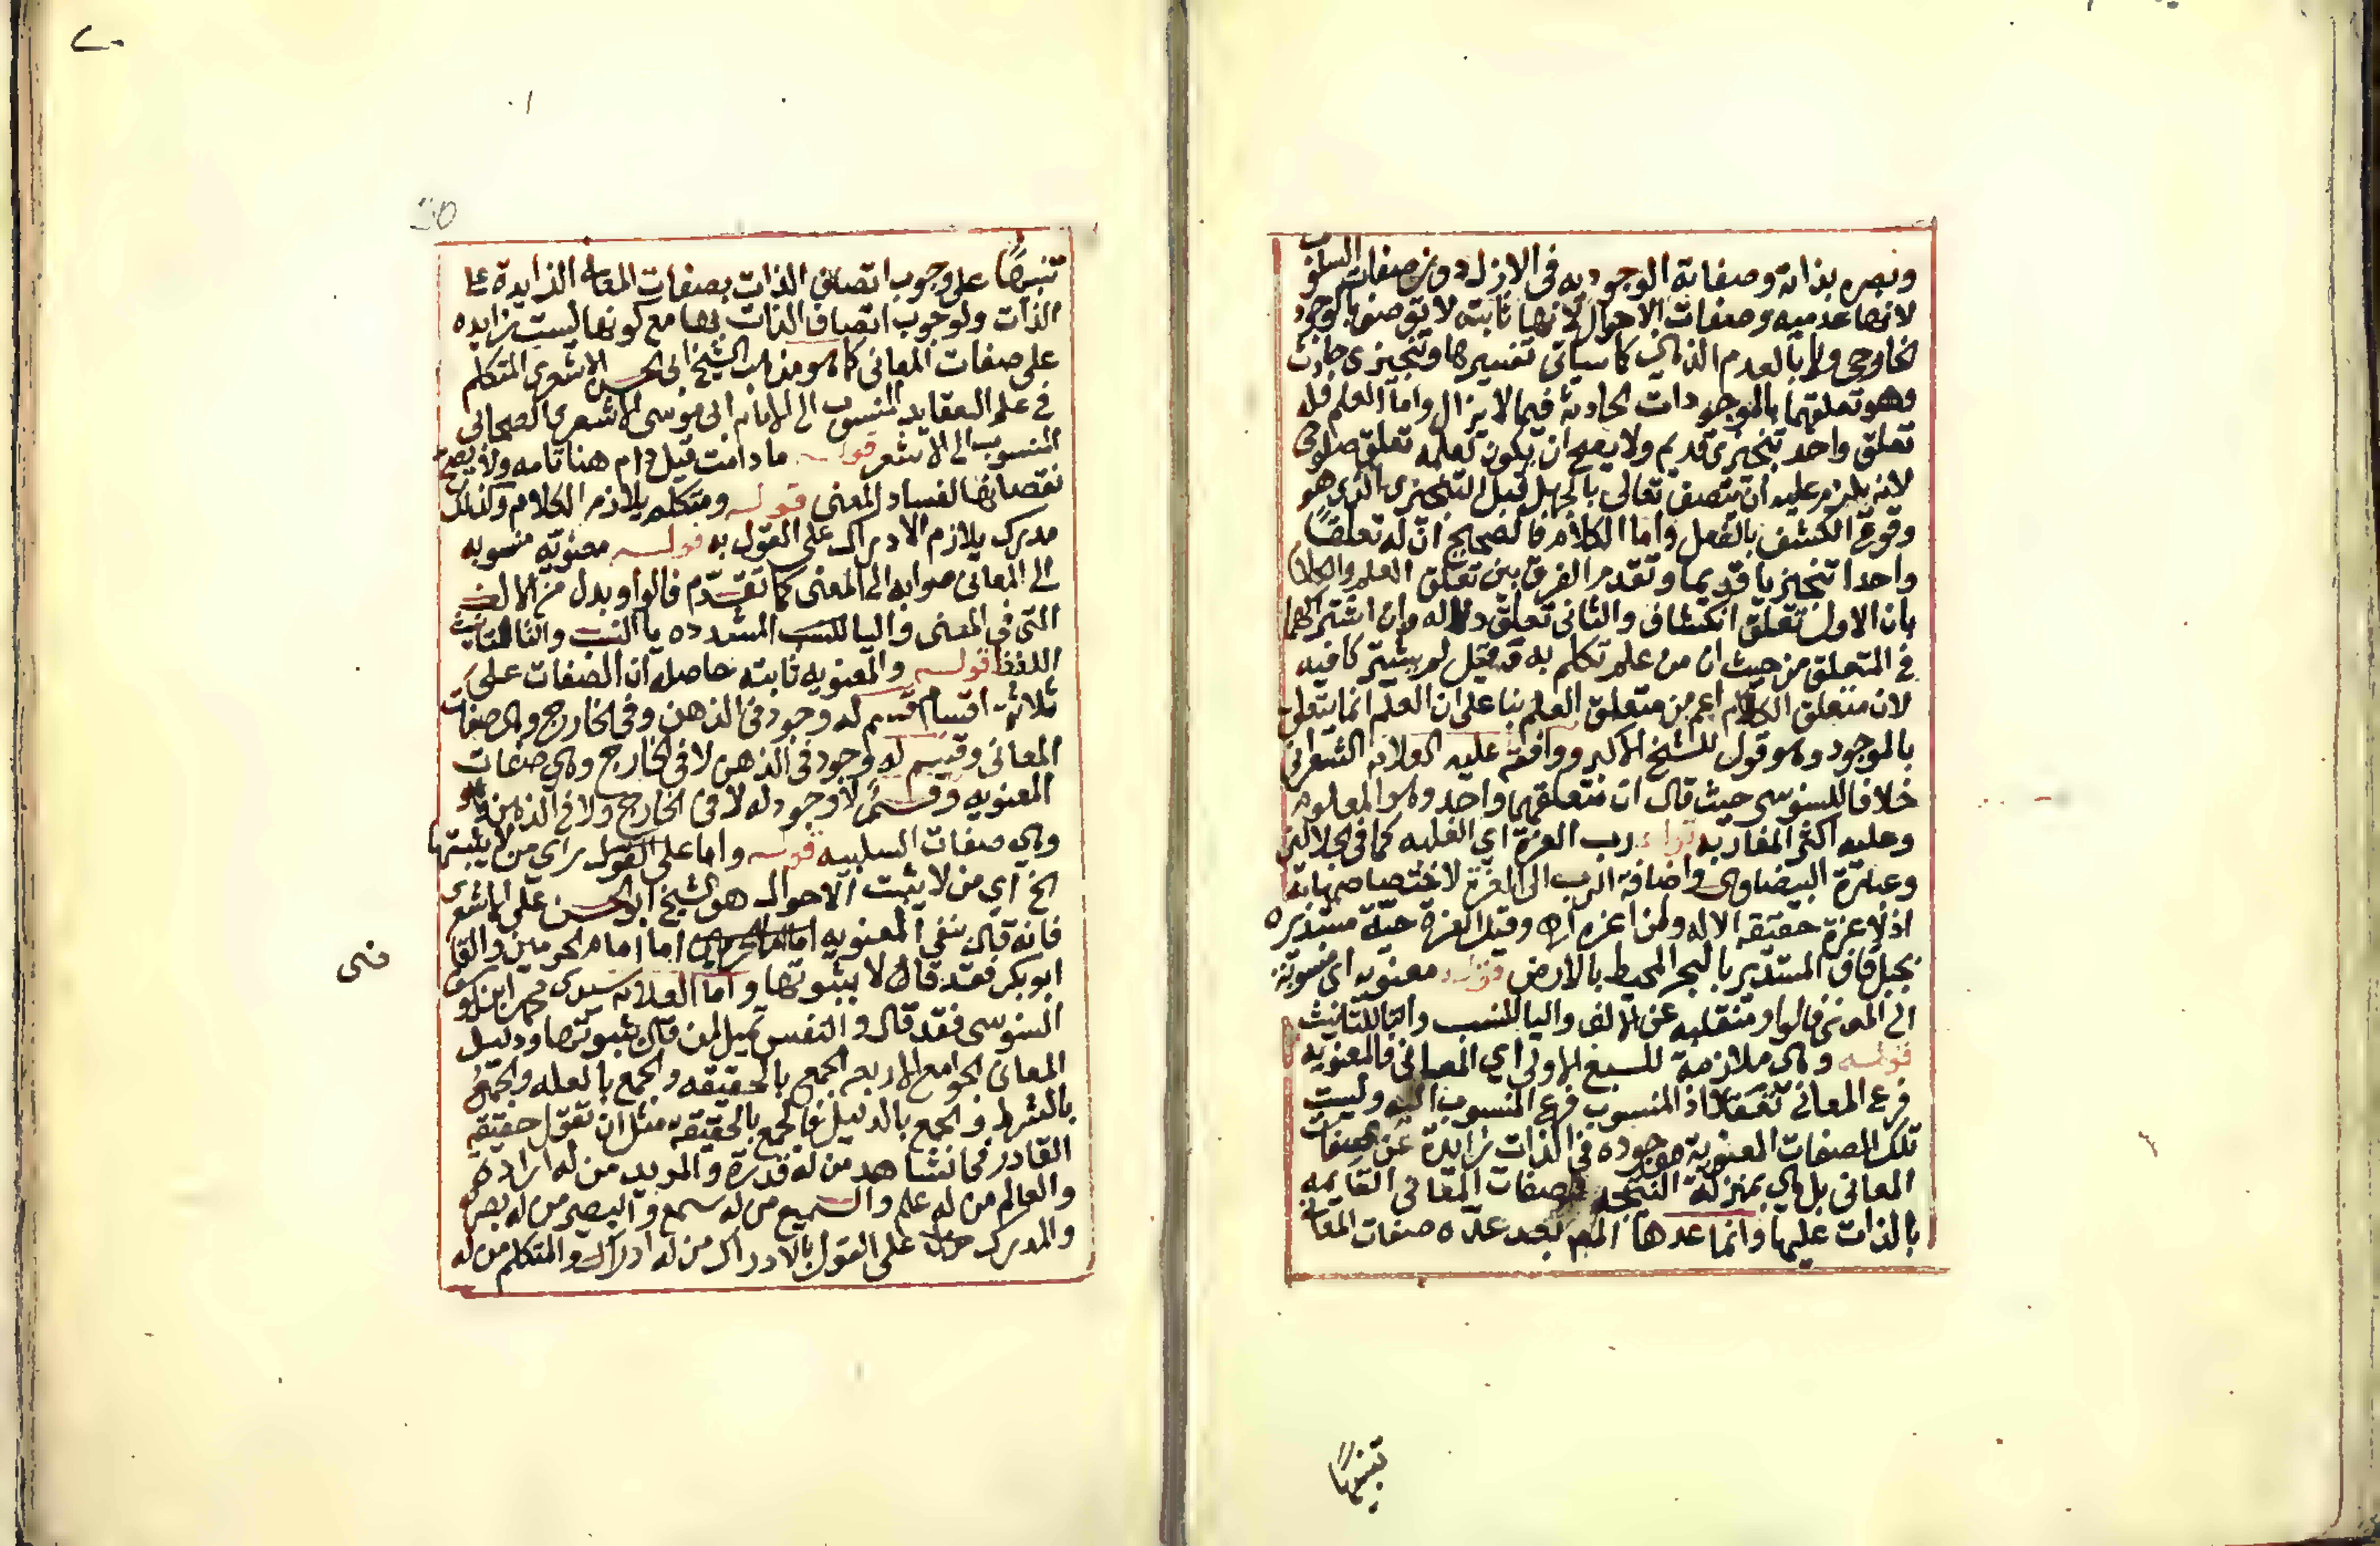 وبصره بذاته وصفاته الوجوديه في الازل دون صفات السلوب
لانها عدميه وصفات الاحوال لانها ثابته لا توصف بالوجود
الخارجي ولا بالعدم الذي كما سياتي تفسيرها وتنجيزي حادث
وهو تعلقهما بالموجودات الحادثة فيما لا يزال واما العلم فله
تعلق واحد تنجيزي قديم ولا يصح ان يكون لعلمه تعلق صلوحي
لانه يلزم عليه ان يتصف تعالى بالجهل قبل التنجيزي الذي هو
وقوع الكشف بالفعل واما الكلام فالصحيح ان له تعلقا
واحدا تنجيزيا قديما وتقدم الفرق بين تعلق العلم والكلام
بان الاول تعلق انكشاف والثاني تعلق دلاله وان اشتركهما
في المتعلق من حيث ان من علم تكلم به فيه
لان متعلق الكلام اعم من متعلق العلم بنا على ان العلم انما يتعلق
بالموجود وهو قول للشيخ الاكبر ووافقه عليه الشعراني
خلافا للسنوسي حيث قال ان متعلقهما واحد وهو المعلوم
وعليه اكثر المغاربه قوله رب العزة اي الغلبه كما في الجلالين
وعبارة البيضاوي واضافة الرب الى العزة لاختصاصها به
اذ لا عزة حقيقة الا له ولمن اعزه اه وقيل العزة حية مستديره
بجبل قاف المستدير بالبحر المحيط بالارض قوله معنويه اي منسوبة
الى المعنى فالواو منقلبه عن الالف واليا للنسب والتا للتانيث
قوله وهي ملازمة للسبع الاولى اي المعاني فالمعنويه
فرع المعاني تعقلا اذ المنسوب فرع المنسوب اليه وليست
تلك الصفات المعنوية موجوده في الذات زايدة عن صفات
المعاني بل هي بمنزلة النتيجه لصفات المعاني القايمه
بالذات عليها وانما عدها بعد عده صفات المعاني
تنبيها
تنبيها على وجوب اتصاف الذات بصفات المعاني الزايدة على
الذات ولوجوب اتصاف الذات بها مع كونها ليست زايده
على صفات المعاني كما هو مذهب الشيخ ابي الحسن الاشعري المتكلم
في علم العقايد المنسوب الى الامام ابي موسى الاشعري الصحابي
المنسوب الى الاشعر قوله ما دامت قيل دام هنا تامه ولا يصح
نقصانها لفساد المعنى قوله ومتكلم يلازم الكلام وكذلك
مدرك يلازم الادراك على القول به قوله معنوية منسوبه
الى المعاني صوابه الى المعنى كما تقدم فالواو بدل من الالف
التي في المعنى واليا للنسب المشدده يا النسب والتا لتانيث
اللفظ قوله والمعنويه ثابته حاصله ان الصفات على
ثلاثة اقسام قسم له وجود في الذهن وفي الخارج وهي صفات
المعاني وقسم له وجود في الذهن لا في الخارج وهي صفات
المعنويه وقسم لا وجود له لا في الخارج ولا في الذهن
وهي صفات السلبيه قوله واما على القول براي من لا يثبتها
الخ اي من لا يثبت الاحوال هو الشيخ ابو الحسن علي الاشعري
فانه قال بنفي المعنويه اما امام الحرمين والقا
ضي
ابو بكر فقد قال لا بثبوتها واما العلامه سيدي محمد ابن يوسف
السنوسي فقد قال والنفس تميل لمن قال بثبوتها ودليل
المعاني الجوامع الاربع الجمع بالحقيقه والجمع بالعله والجمع
بالشرط والجمع بالدليل فالجمع بالحقيقة مثل ان تقول حقيقة
القادر فيما نشاهد من له قدرة والمريد من له اراده
والعالم من له علم والسميع من له سمع والبصير من له بصر
والمدرك على القول بالادراك من له ادراك والمتكلم من له